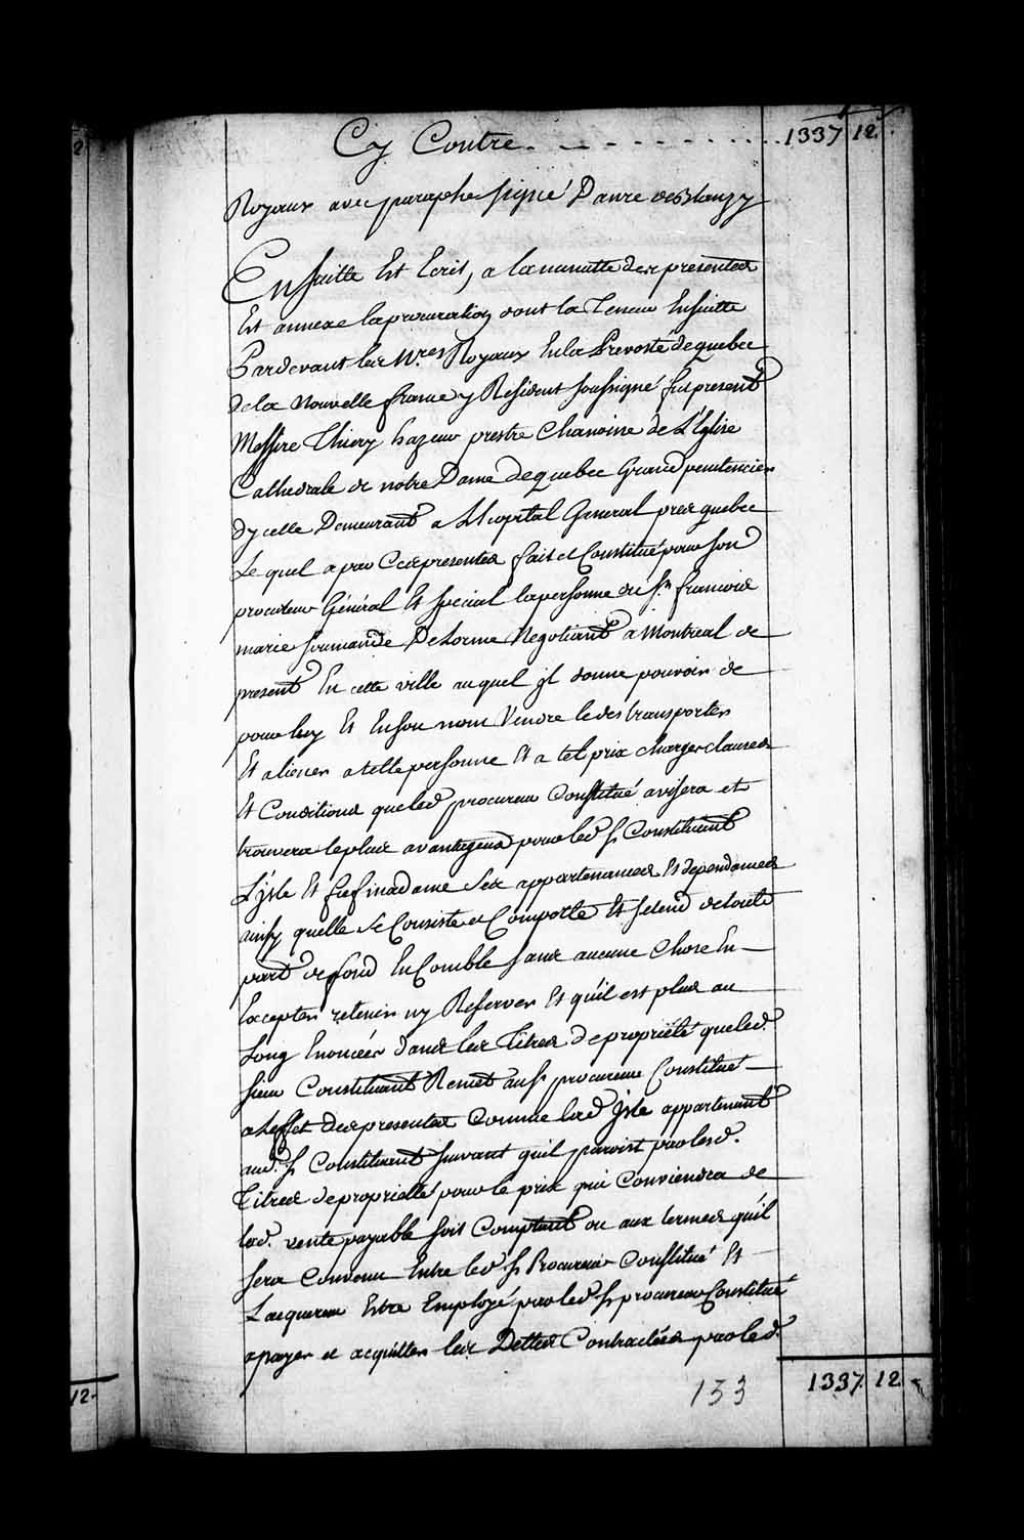 Cy Contre . . . . . . . . . . . 1337 12.
Royaux avec paraphe signé Danre deBlanzy
Ensuitte Est Ecrit, a la minutte des presentes
Est annexe laprocuration dont la Teneur Ensuitte
Pardevant les N.res Royaux Enla Prevosté dequebec
dela Nouvelle france y Resident soussigné fut present
Messire Thiery hazeur prestre Chanoine de L'Eglise
Cathedrale de notre Dame dequebec Grand penitencier
dycelle Demeurant a LHopital General pres quebec
Le quel a par Cespresentes fait et Constitué pour son
procureur Général Et special lapersonne du Sr. francois
marie soumande Delorme Negotiant a Montreal de
present En cette ville auquel jl donne pouvoir de
pour luy Et Enson nom Vendre ceder transporter
Et aliener a telle personne Et a tel prix charges clauses
Et Conditions queled procureur Constitué avisera et
trouvera leplus avantageux pour led Sr Constituant
L'jsle Et fief madame ses appartenances Et dependances
ainsy quelle se Consiste et Comporte Et setend detoute
part defond EnComble sans aucune Chose En
Excepter retenir ny Reserver Et qu'il est plus au
Long Enoncées dans les Titres depropriété queled.
sieur Constituant Remet aud Sr procureur Constitué
aLeffet desprésentes Comme lad jsle appartenant
aud. Sr Constituant suivant quil paroist par lesd.
Titres depropriétté pour le prix qui Conviendra de
lad. vente payable soit Comptant ou aux termes qu'il
sera Convenu Entre led Sr Procureur Constitué Et
Lacquereur Estre Employé par led Sr procureur Constitué
a payer et acquitter les Dettes Contractées par led.
153
1337. 12
2
12.